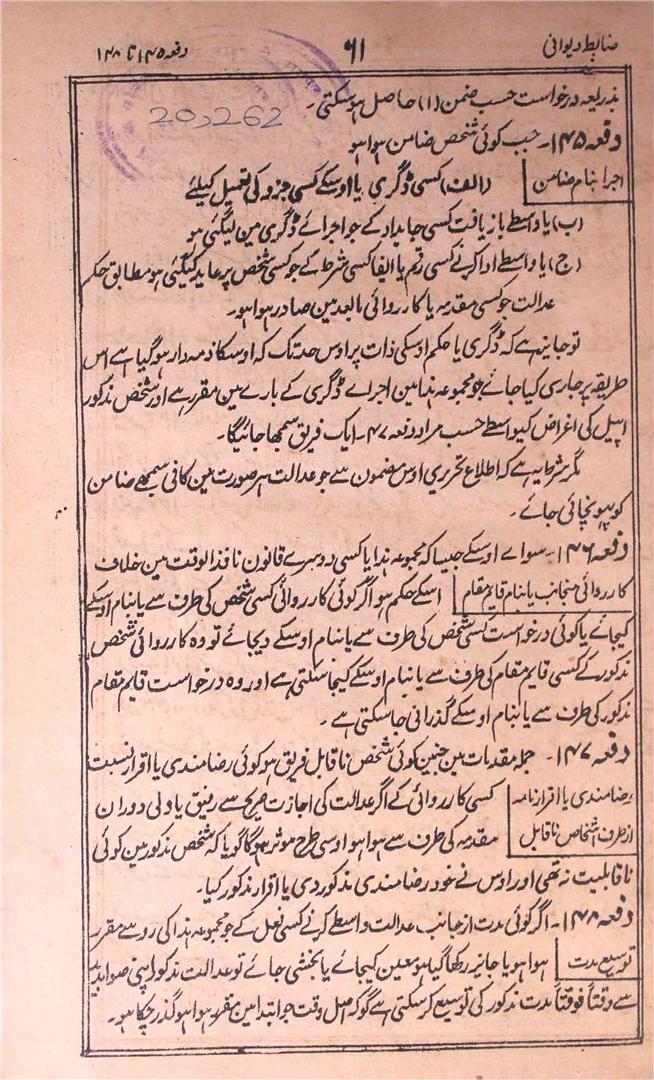 ضابطہ دیوانی ۶۱ دفعہ ۱۴۵ تا ۱۴۸
20,262
بذریعہ درخواست حسب ضمن (۱) حاصل ہوسکتی۔
دفعہ ۱۴۵۔ جب کوئی شخص ضامن ہوا ہو
اجرا بنام ضامن
(الف) کسی ڈگری یا اوسکے کسی جزو کی تعمیل کیلئے
(ب) یا واسطے بازیافت کسی جایداد کے جو اجرائے ڈگری مین لیگئی ہو
(ج) یا واسطے ادا کرنے کسی رقم یا ایفا کسی شرط کے جو کسی شخص پر عاید کیگئی ہو مطابق حکم
عدالت جو کسی مقدمہ یا کارروائی مابعد مین صادر ہوا ہو۔
تو جایز ہے کہ ڈگری یا حکم اوسکی ذات پر اوس حد تک کہ اوسکا ذمہ دار ہوگیا ہے اس
طریقہ پر جاری کیا جائے جو مجموعہ ہذا مین اجرائے ڈگری کے بارے مین مقرر ہے اور شخص مذکور
اپیل کی اغراض کیواسطے حسب مراد دفعہ ۴۷۔ ایک فریق سمجھا جائیگا۔
مگر شرط یہ ہے کہ اطلاع تحریری اوس مضمون سے جو عدالت ہر صورت مین کافی سمجھے ضامن
کو پہونچائی جائے۔
دفعہ ۱۴۶۔ سوائے اوسکے جیسا کہ مجموعہ ہذا یا کسی دوسرے قانون نافذ الوقت مین خلاف
کارروائی منجانب یا بنام قایم مقام
اسکے حکم ہو اگر کوئی کارروائی کسی شخص کی طرف سے یا بنام اوسکے
کیجائے یا کوئی درخواست کسی شخص کی طرف سے یا بنام اوسکے دیجائے تو وہ کارروائی شخص
مذکور کے کسی قایم مقام کی طرف سے یا بنام اوسکے کیجا سکتی ہے اور وہ درخواست قایم مقام
مذکور کی طرف سے یا بنام اوسکے گذرانی جاسکتی ہے۔
دفعہ ۱۴۷۔ جملہ مقدمات مین جنمین کوئی شخص ناقابل فریق ہو کوئی رضامندی یا اقرار نسبت
رضامندی یا اقرارنامہ از طرف اشخاص ناقابل
کسی کارروائی کے اگر عدالت کی اجازت صریح سے رفیق یا ولی دوران
مقدمہ کی طرف سے ہوا ہو اوسی طرح موثر ہوگا گویا کہ شخص مذکور مین کوئی
ناقابلیت نہ تھی اور اوس نے خود رضامندی مذکور دی یا اقرار مذکور کیا۔
دفعہ ۱۴۸۔ اگر کوئی مدت از جانب عدالت واسطے کرنے کسی فعل کے جو مجموعہ ہذا کی رو سے مقرر
توسیع مدت
ہوا ہو یا جایز رکھا گیا ہو معین کیجائے یا بخشی جائے تو عدالت مذکور اپنی صوابدید
سے وقتاً فوقتاً مدت مذکور کی توسیع کرسکتی ہے گو کہ اصل وقت جو ابتدا مین مقرر ہوا ہو گذر چکا ہو۔